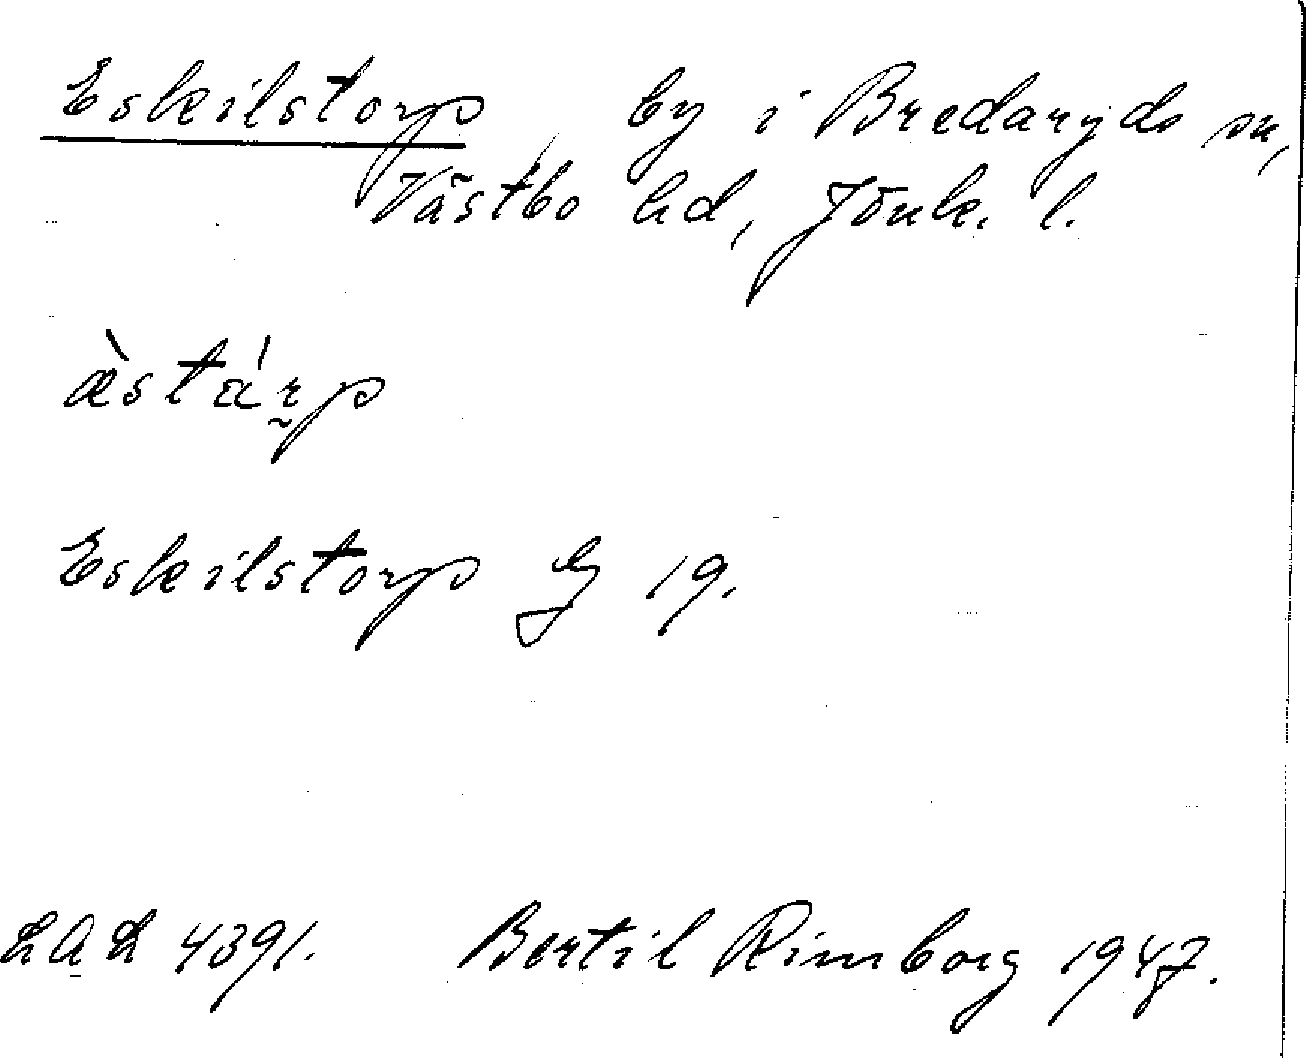 Eskilstorp, by i Bredaryds sn,
Västbo hd, Jönk. l.
æ̀stár̰p
Eskilstorp G 19.
LAL 4391. Bertil Rimborg 1947.